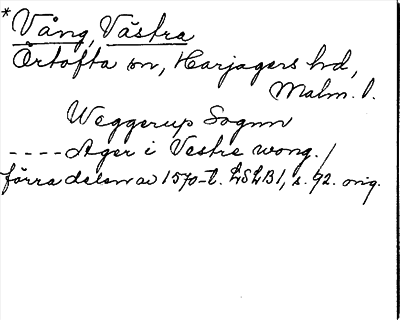 * Vång, Västra
Örtofta sn, Harjagers hd,
Malm. l.
Weggerup Sognn
---- Ager i Vestre wong./
förra delen av 1570-t. LSLB1, s. 92. orig.